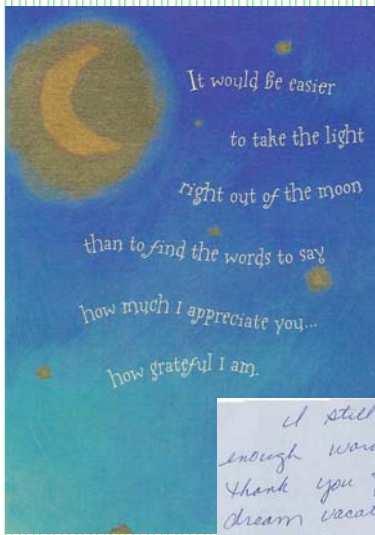 It would be easier
to take the light
right out of the moon
than to find the words to say
how much I appreciate you...
how grateful I am.
I still
enough
thank you
dream